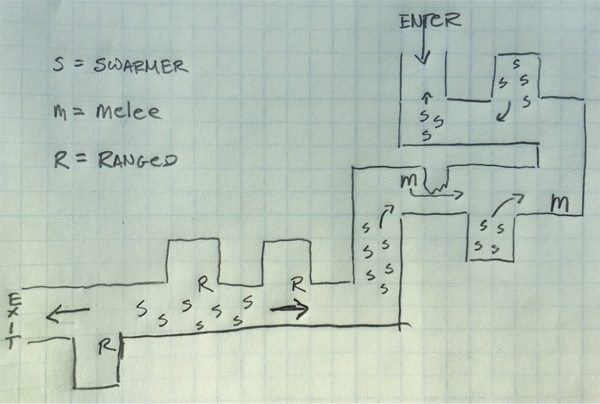 ENTER
S = SWARMER
m = melee
R = RANGED
S
S S
S
S S
S
m
m
S S
S S
S
S
S S
S
S
R R
S S S S S S S
R
EXIT